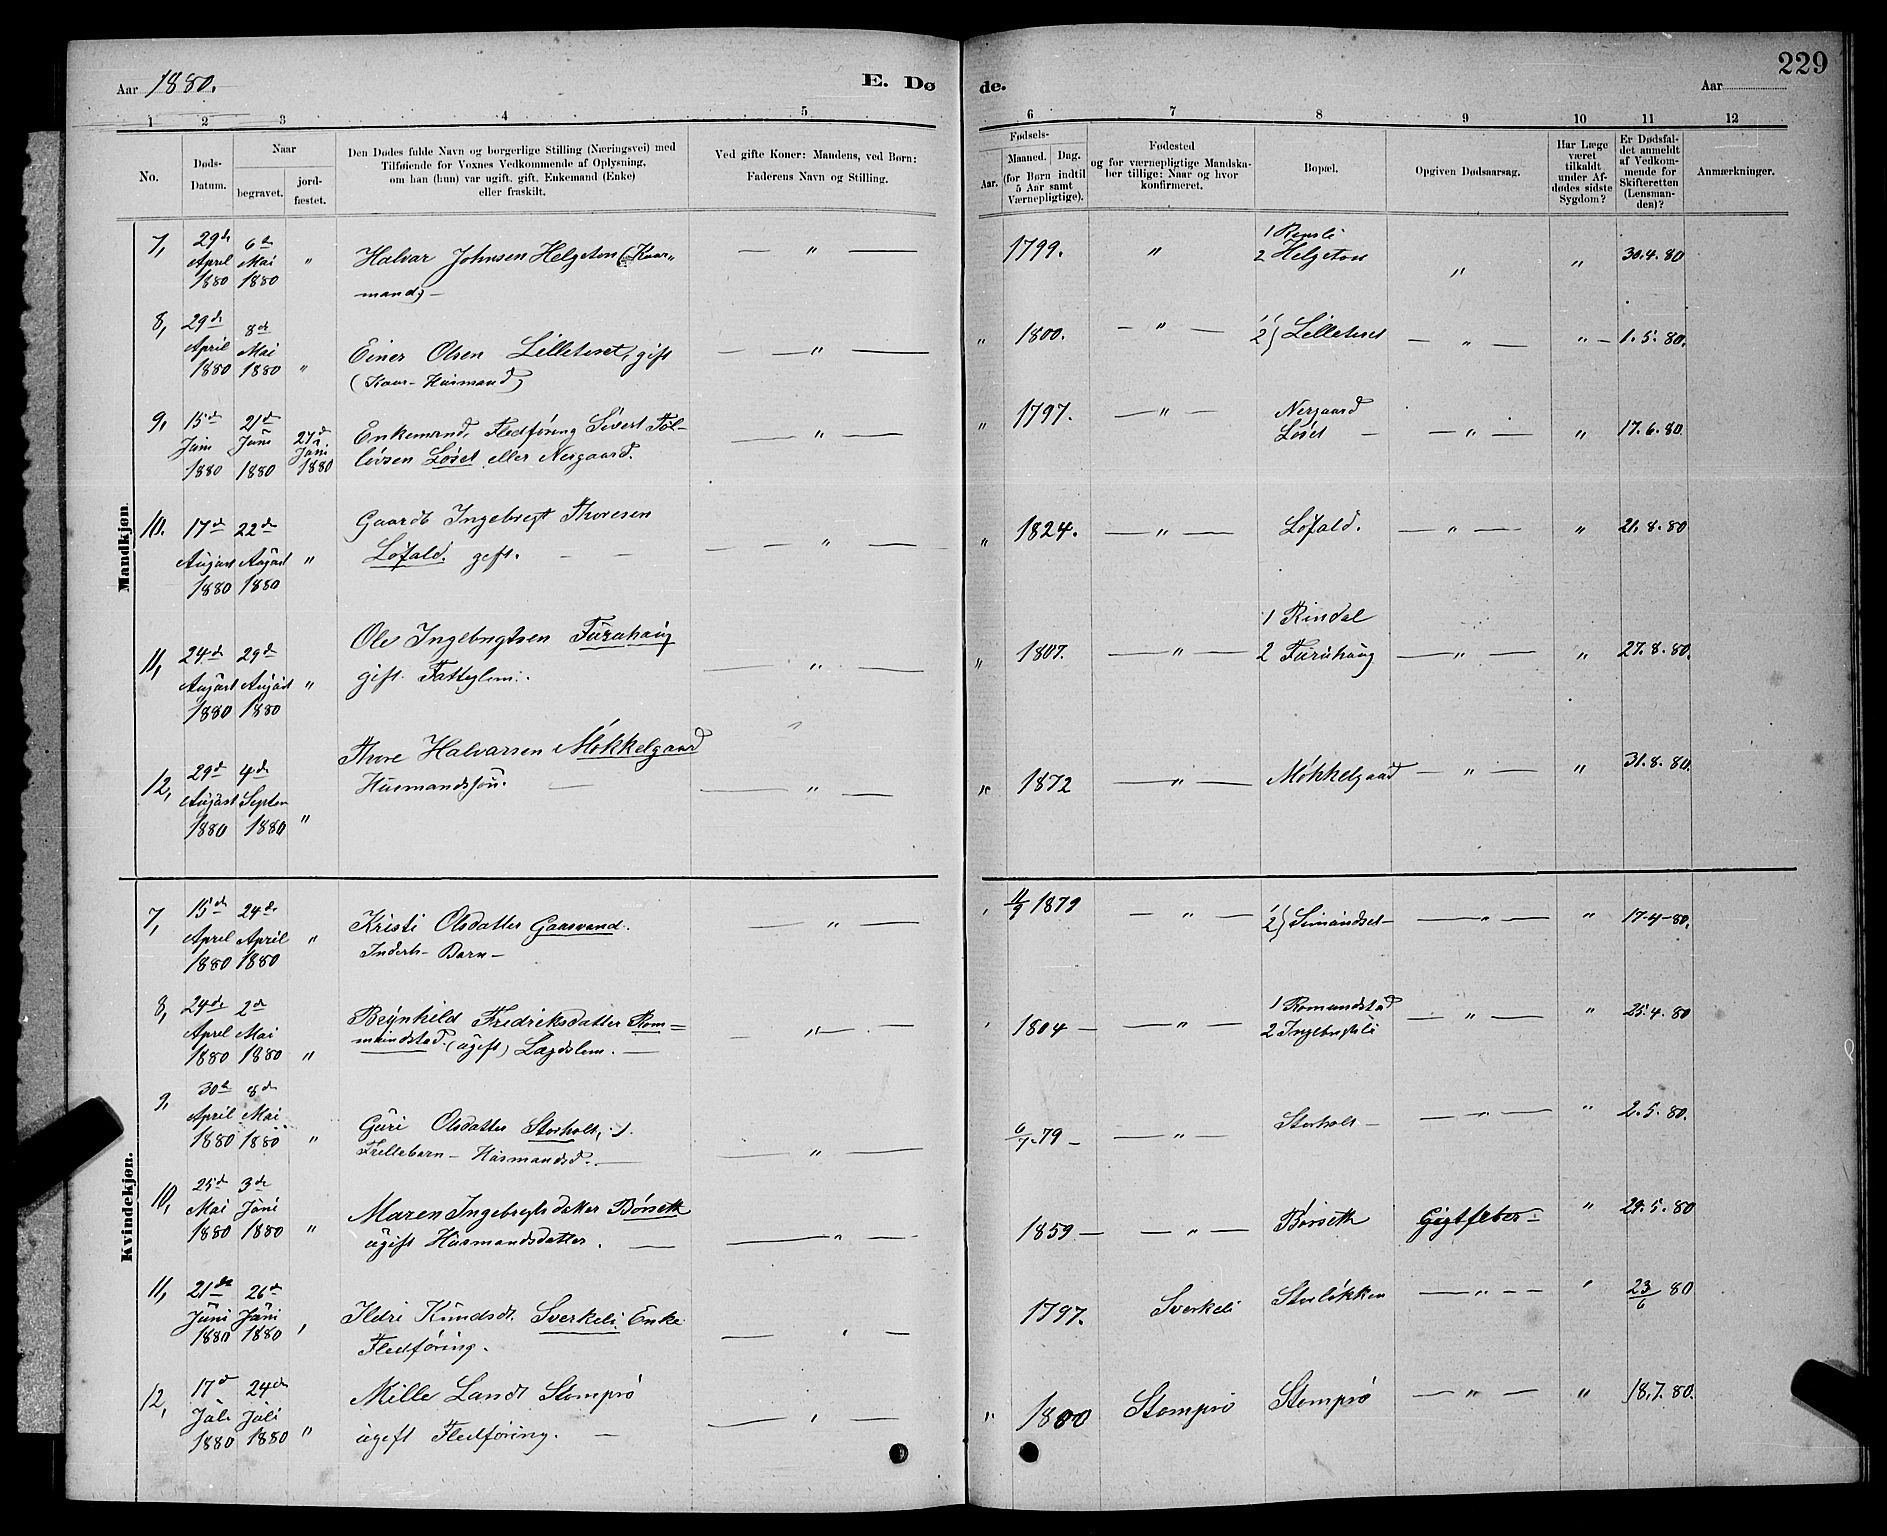 Aar 1880.
E. Dø
de.
Aar
229
1 2 3 4 5 6 7 8 9 10 11 12
No.
Døds-
Datum.
Naar
begravet.
jord-
fæstet.
Den Dødes fulde Navn og borgerlige Stilling (Næringsvei) med
Tilføiende for Voxnes Vedkommende af Oplysning,
om han (hun) var ugift, gift, Enkemand (Enke)
eller fraskilt.
Ved gifte Koner: Mandens, ved Børn:
Faderens Navn og Stilling.
Fødsels-
Aar.
Maaned. Dag.
(for Børn indtil
5 Aar samt
Værnepligtige).
Fødested
og for værnepligtige Mandska-
ber tillige: Naar og hvor
konfirmeret.
Bopæl.
Opgiven Dødsaarsag.
Har Læge
været
tilkaldt
under Af-
dødes sidste
Sygdom?
Er Dødsfal-
det anmeldt
af Vedkom-
mende for
Skifteretten
(Lensman-
den)?
Anmærkninger.
Mandkjøn.
7, 29de 6te
April Mai "
1880 1880
Halvar Johnsen Helgeton (Kaar-
mand) —
— " —
1799. "
2 Helgeton
" " 30.4.80
8, 29de 8de
April Mai
1880 1880 "
Einer Olsen Lilleteset, gift
(Kaar-Husmand)
— " —
" 1800. — " —
1
2} Lilleteset
— " — " — 1.5.80.
9, 15de 21de 27de
Juni Juni Juni
1880 1880 1880
Enkemand, Fledføring Sivert Tol-
levsen Løset eller Nergaard.
— " —
" 1797. — " —
Nergaard
Løset —
— " — " 17.6.80.
10. 17de 22de
August August "
1880 1880
Gaardb Ingebrigt Thoresen
Løfald. gift. — —
— " —
" 1824. — " — Løfald. — " — " 21.8.80
11, 24de 29de
August August "
1880 1880
Ole Ingebrigtsen Furuhaug
gift. Fattiglem.
— " —
" 1807. — " —
1 Rindal
2 Furuhaug
— " — " 27.8.80.
12, 29de 4de
August Septem
1880 1880 "
Thore Halvarsen Møkkelgaard
Husmandssøn. —
— " —
" 1872 — " — Møkkelgaard — " — " 31.8.80.
Kvindekjøn.
7, 15de 24de
April April "
1880 1880
Kristi Olsdatter Gaasvand.
Inderts- Barn —
— " —
11/9 1879 — " —
1
2} Simundset —
— " — " 17-4-80.
8, 24de 2de
April Mai
1880 1880 "
Brynhild Fredriksdatter Rom=
mundstad. (ugift) Lægdslem. —
— " —
1804 — — " —
1 Romundstad
2 Ingebrigtsli
— " — " 25.4.80
9, 30te 8de
April Mai
1880 1880 "
Guri Olsdatter Storholt,
Frillebarn — Husmandsd. —
— " —
6/7.79 — — " — Storholt — — " — " 2.5.80.
10, 25de 3de
Mai Juni
1880 1880 "
Maren Ingebrigtsdatter Børseth
ugift Husmandsdatter. —
— " —
1859 — — " — Børseth Gigtfeber — " 29.5.80
11, 21de 26de
Juni Juni
1880 1880
Ildri Knudsdt. Sverkeli, Enke
Fledføring.
— " —
1797. Sverkeli Storløkken — " — " 23/6 80
12, 17de 24de
Juli Juli
1880 1880 "
Mille Landt Stomprø
ugift Fledføring. —
— " —
" 1800 Stomprø Stomprø — " — " 18.7.80.